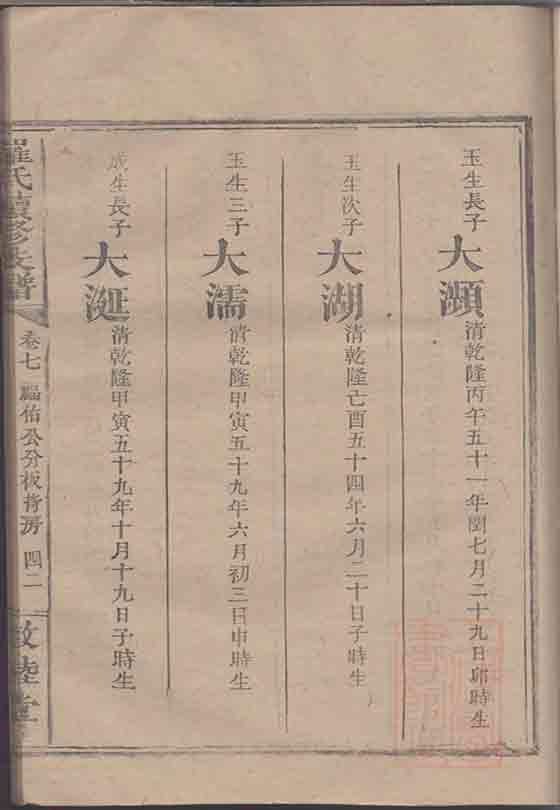 玉生長子大灝清乾隆丙午五十一年閏七月二十九日卯時生
玉生次子大湖清乾隆己酉五十四年六月二十日子時生
玉生三子大濡清乾隆甲寅五十九年六月初三日申時生
成生長子大涎清乾隆甲寅五十九年十月十九日子時生
羅氏續修支譜 卷七 福佑公分板背房 四二 敦睦堂